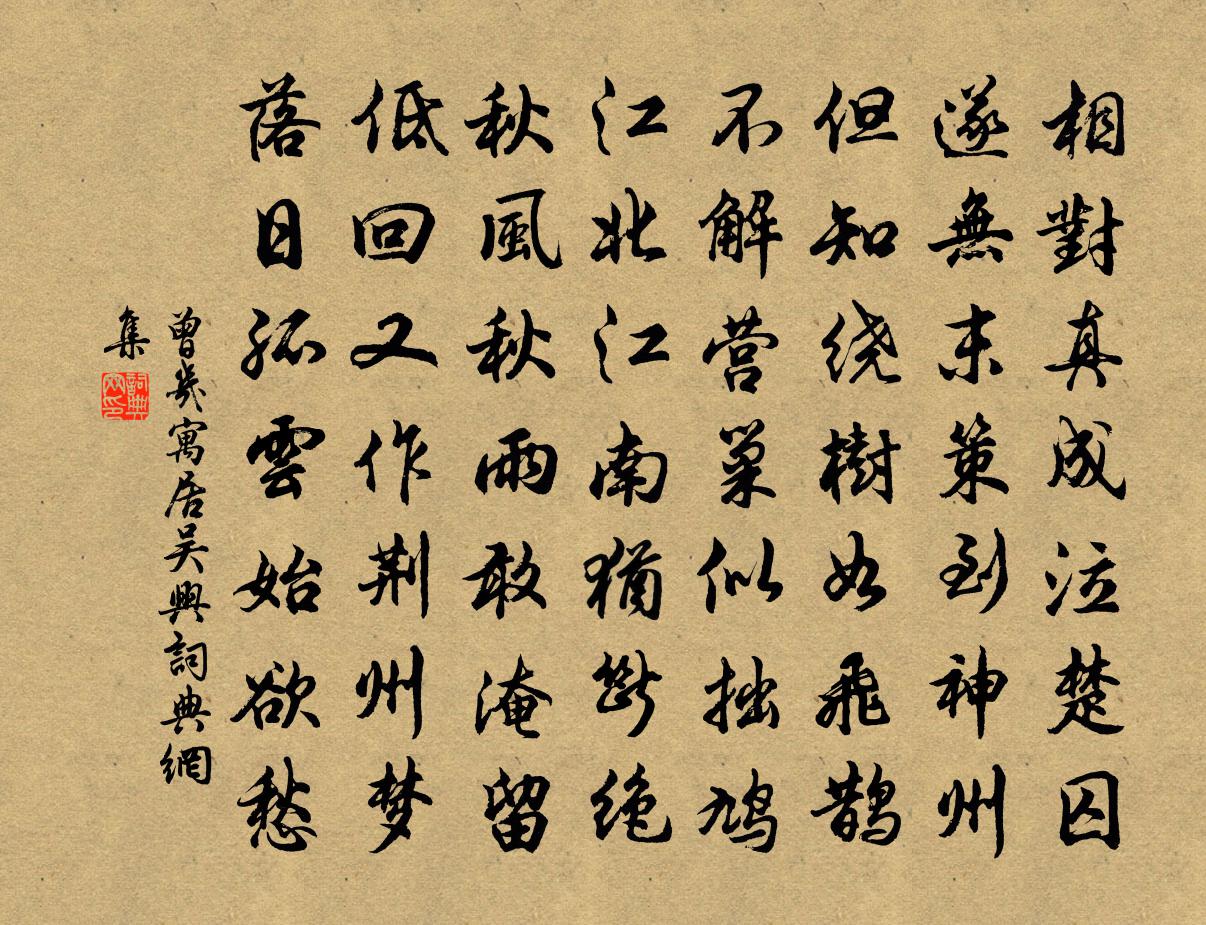 相對真成泣楚囚
遂無末策到神州
但知绕樹如飛鹊
不解营巢似拙鳩
江北江南猶斷绝
秋風秋雨敢淹留
低回又作荆州梦
落日孤雲始欲愁
曾幾寓居吴興詞典網
集
詞典網印